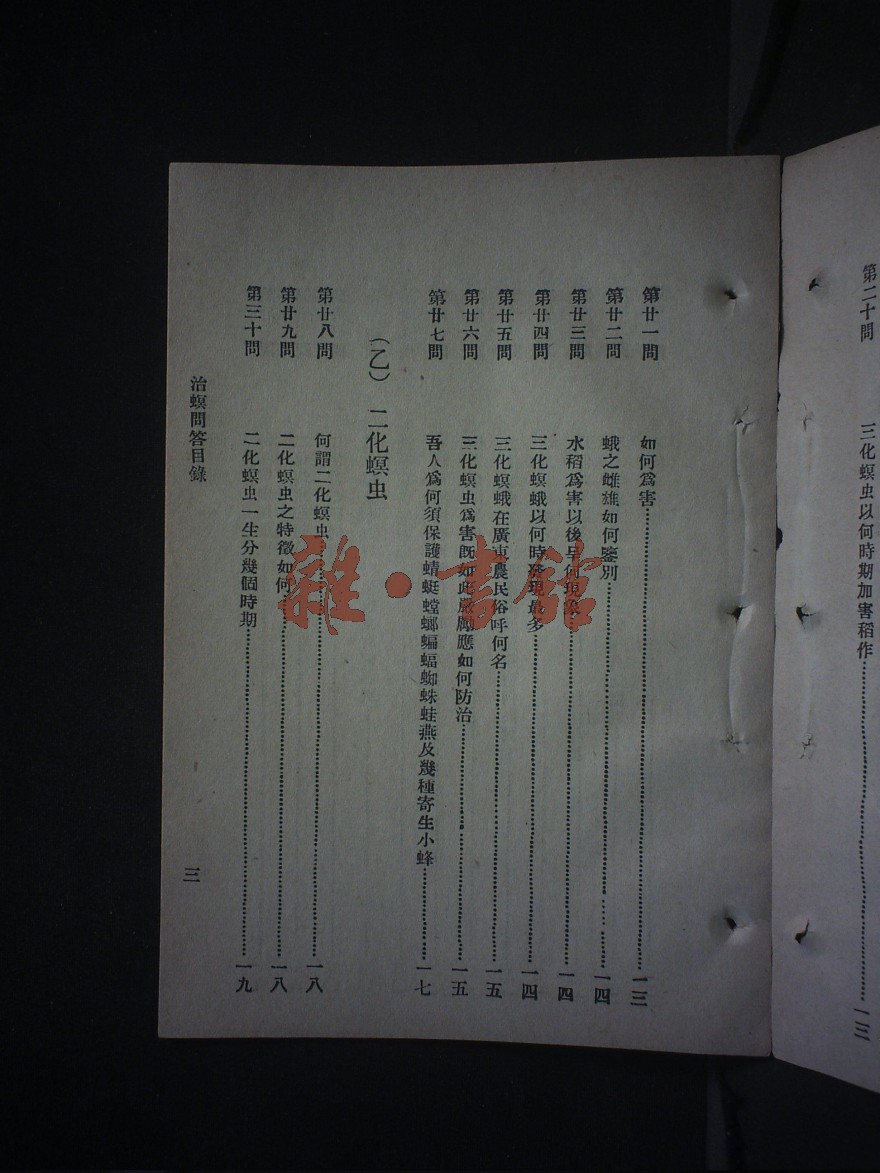 第二十問 三化螟虫以何時期加害稻作 一三
第廿一問 如何爲害 一三
第廿二問 蛾之雌雄如何鑒別 一四
第廿三問 水稻爲害以後呈何現象 一四
第廿四問 三化螟蛾以何時發現最多 一四
第廿五問 三化螟蛾在廣東農民俗呼何名 一五
第廿六問 三化螟虫爲害旣如此嚴厲應如何防治 一五
第廿七問 吾人爲何須保護蜻蜓螳螂蝙蝠蜘蛛蛙燕及幾種寄生小蜂 一七
（乙） 二化螟虫
第廿八問 何謂二化螟虫 一八
第廿九問 二化螟虫之特徵如何 一八
第三十問 二化螟虫一生分幾個時期 一九
治螟問答目錄 三
雜·書館